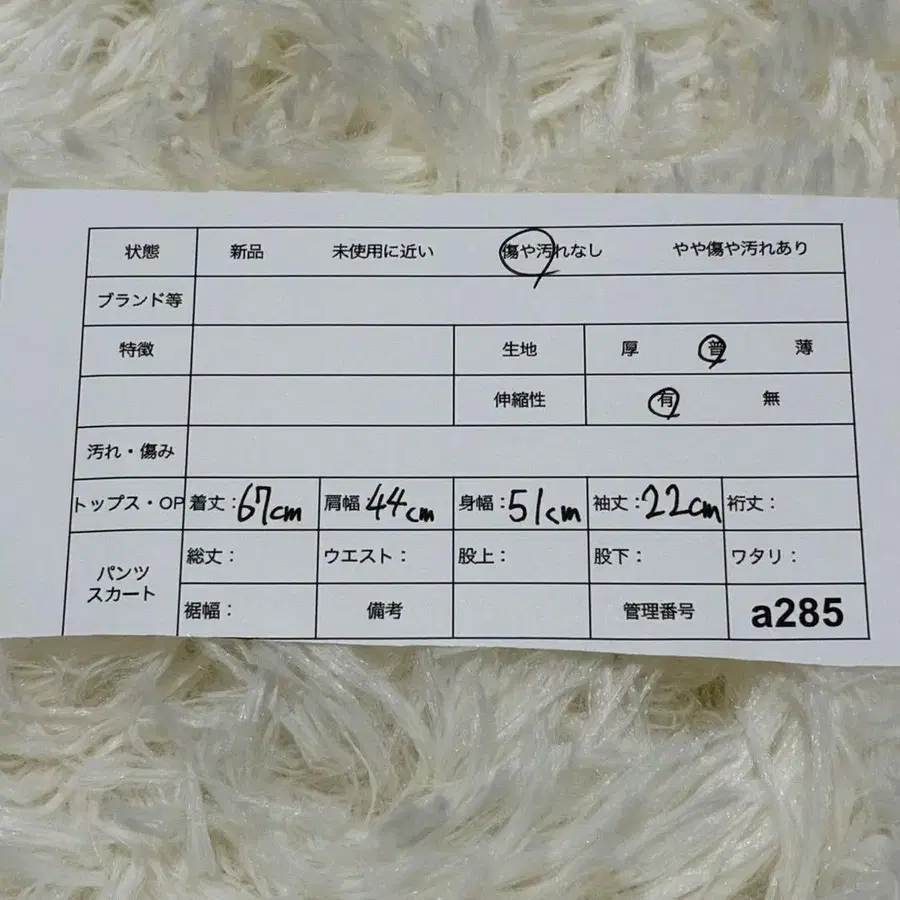 状態 新品 未使用に近い 傷や汚れなし やや傷や汚れあり
ブランド等
特徴 生地 厚 普 薄
伸縮性 有 無
汚れ・傷み
トップス・OP 着丈：67cm 肩幅：44cm 身幅：51cm 袖丈：22cm 裄丈：
パンツ
スカート
総丈： ウエスト： 股上： 股下： ワタリ：
裾幅： 備考 管理番号 a285